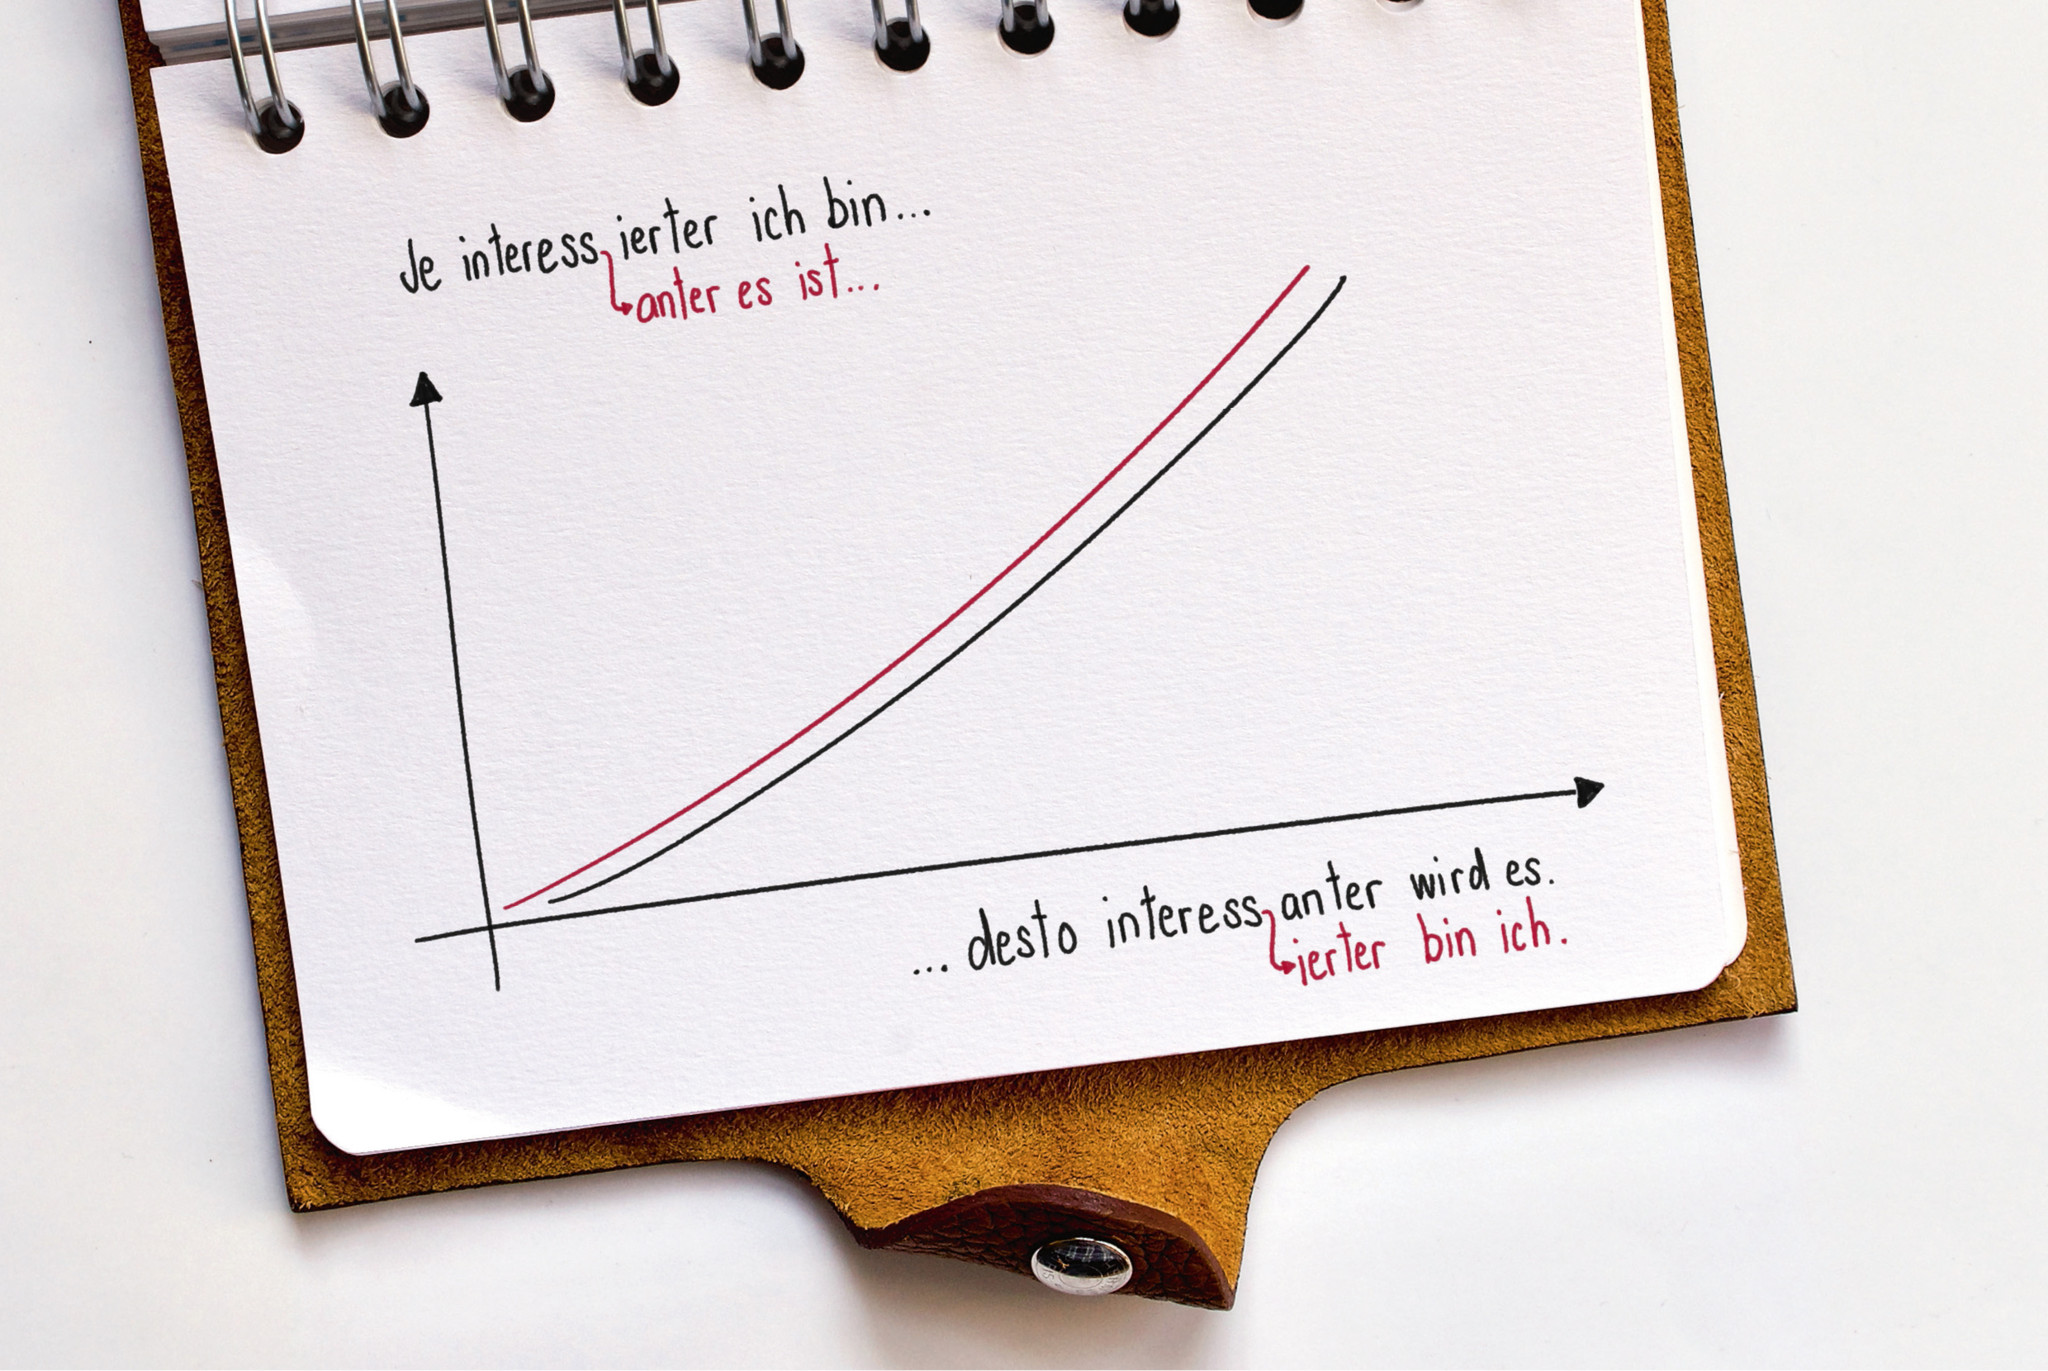 Je interess ierter ich bin...
anter es ist...
... desto interess anter wird es.
ierter bin ich.